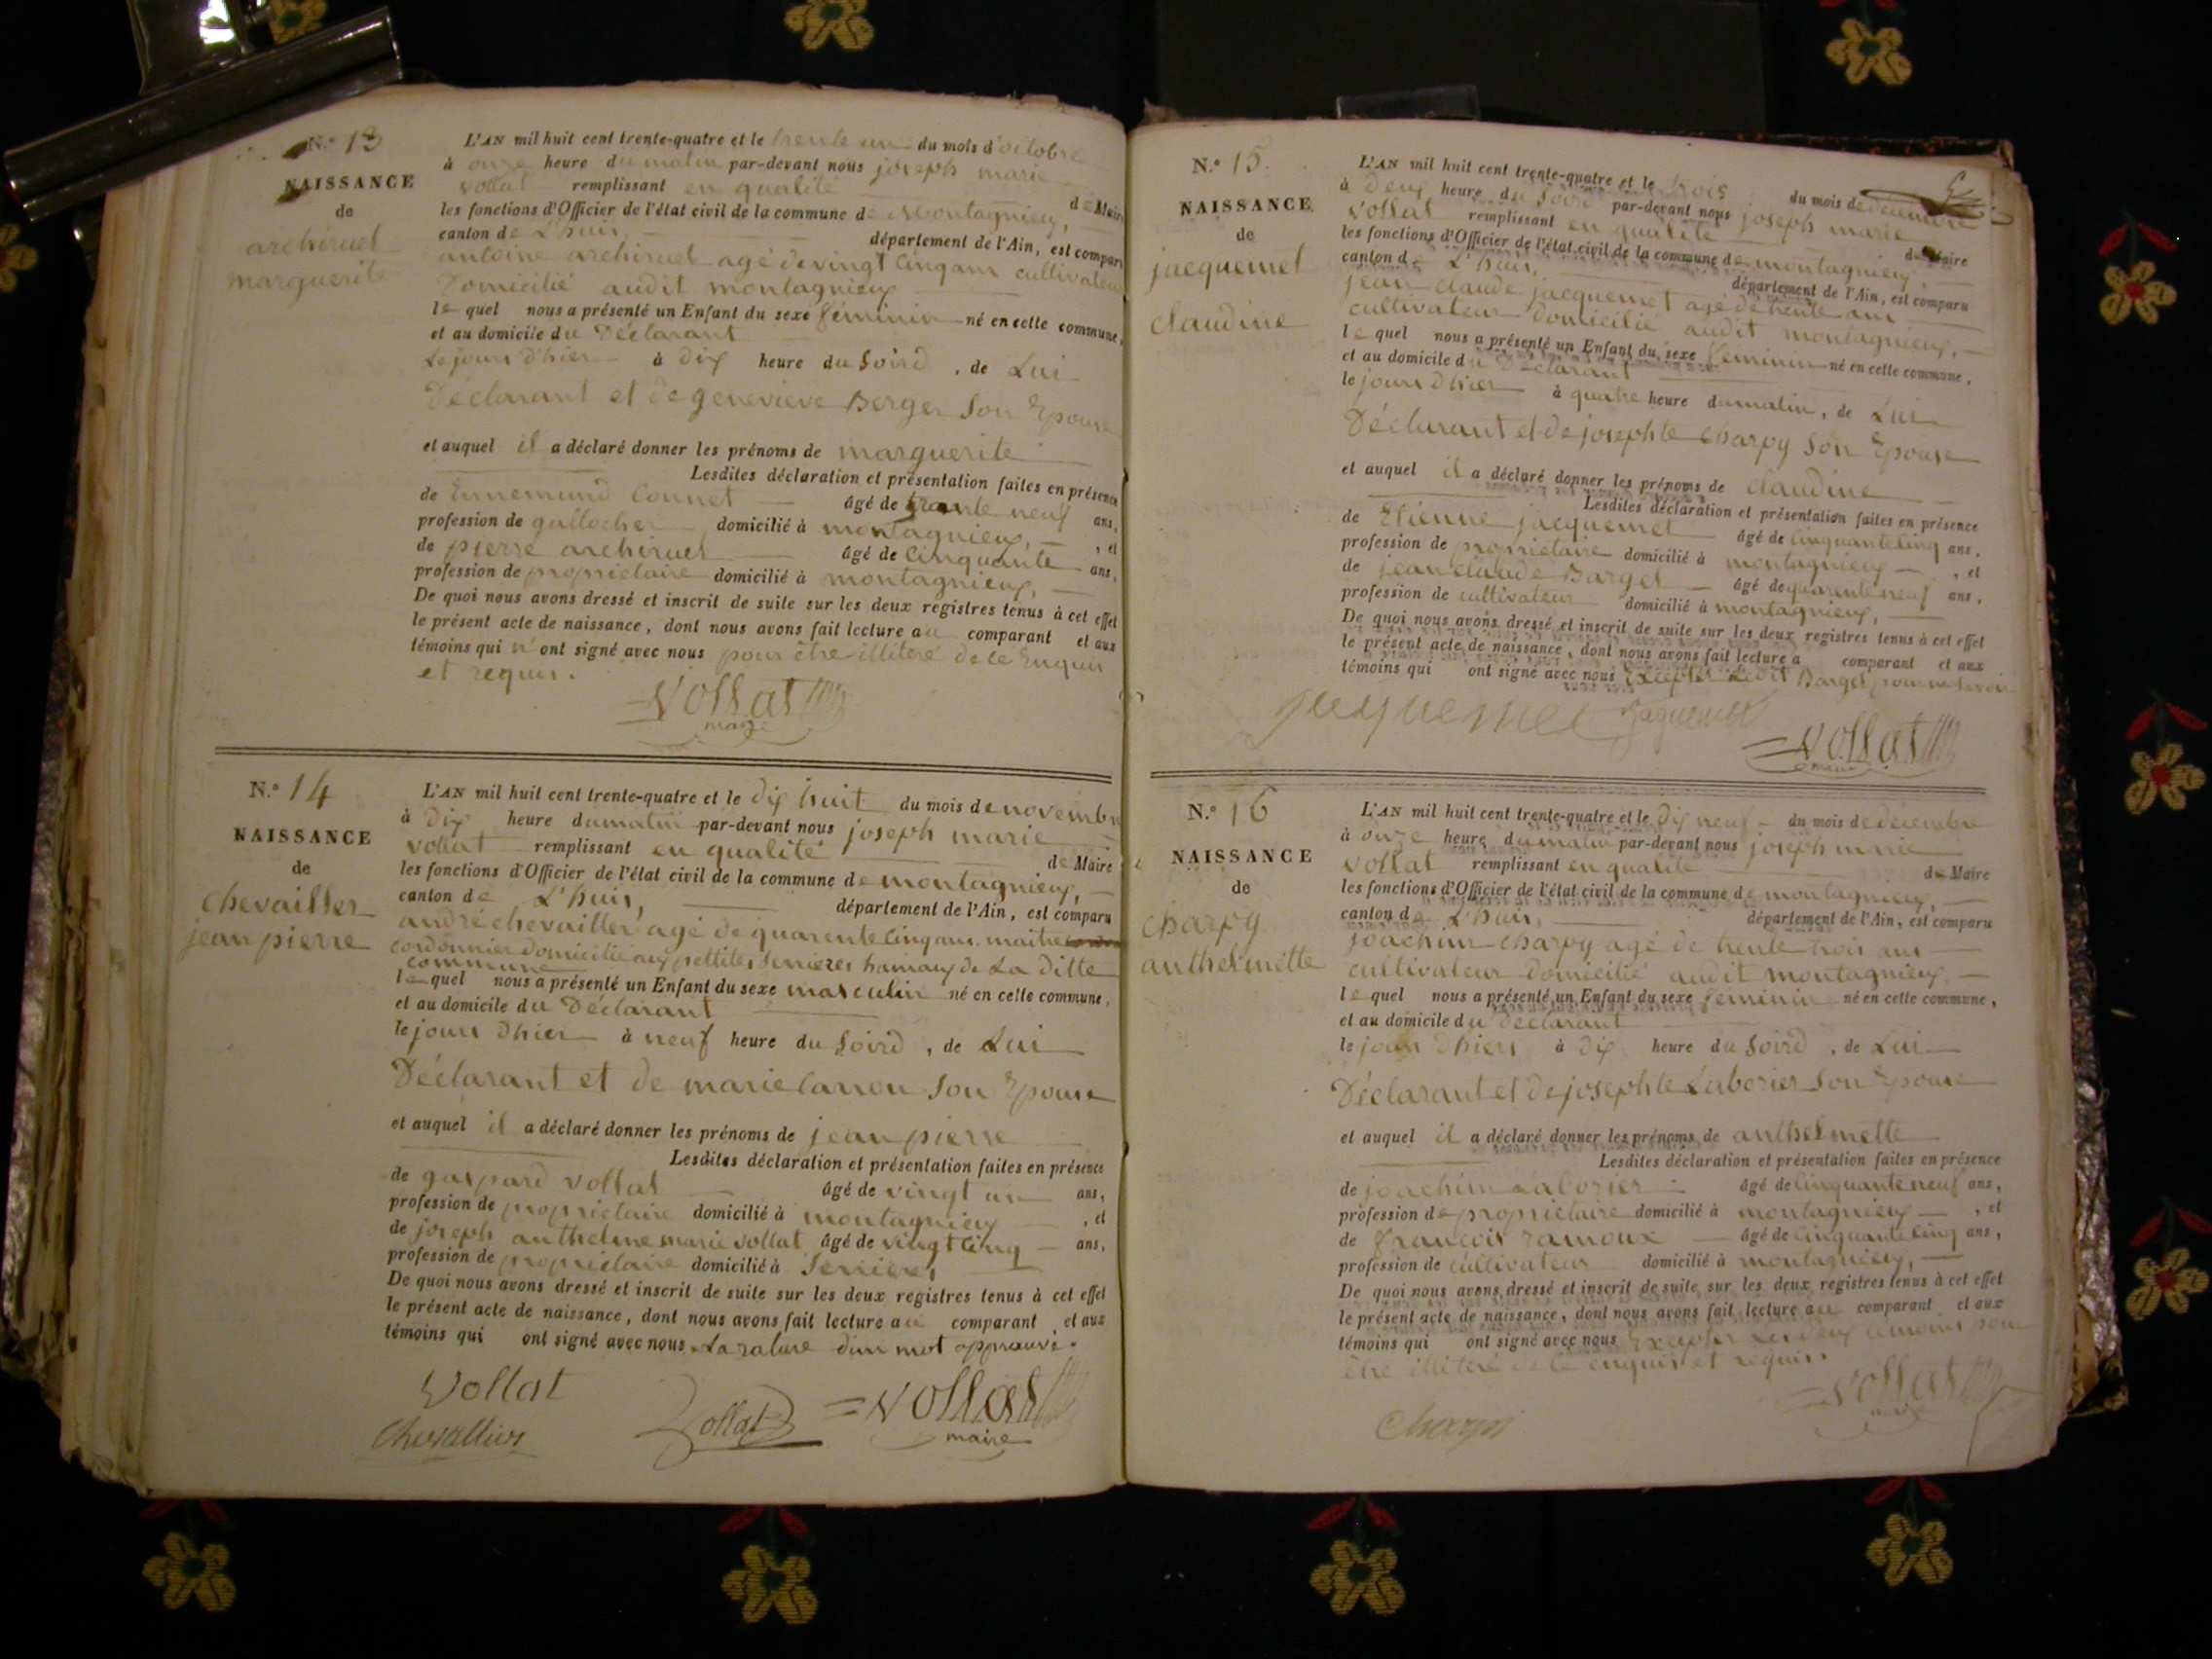 N.º 13
NAISSANCE
de
archeriuet
marguerite
L'AN mil huit cent trente-quatre et le trente un du mois d'octobre
à onze heure du matin par-devant nous joseph marie
vollat remplissant en qualité de Maire
les fonctions d'Officier de l'état civil de la commune de Montagnieu,
canton de L'huis, département de l'Ain, est comparu
antoine agé de vingt cinq ans cultivateur
Domicilié audit montagnieux
le quel nous a présenté un Enfant du sexe féminin né en cette commune,
et au domicile du Déclarant
Le jours d'hier à dix heure du Soird, de Lui
Déclarant et de genevieve Berger Son Epouse
et auquel il a déclaré donner les prénoms de marguerite
Lesdites déclaration et présentation faites en présence
de Ennemund Connet âgé de trante neuf ans,
profession de gallocher domicilié à montagnieux, , et
de pierre âgé de Cinquante ans,
profession de proprietaire domicilié à montagnieux,
De quoi nous avons dressé et inscrit de suite sur les deux registres tenus à cet effet
le présent acte de naissance, dont nous avons fait lecture au comparant et aux
témoins qui n'ont signé avec nous pour être illiteré de ce Enquis
et requis.
Vollat
maire
N.º 14
NAISSANCE
de
chevailler
jean pierre
L'AN mil huit cent trente-quatre et le dix huit du mois de novembre
à Dix heure du matin par-devant nous joseph marie
vollat remplissant en qualité de Maire
les fonctions d'Officier de l'état civil de la commune de montagnieux,
canton de L'huis, département de l'Ain, est comparu
andré chevailler agé de quarente cinq ans. maitre
cordonnier domicilié aux pettites Serrieres hamaux de La ditte
commune
le quel nous a présenté un Enfant du sexe masculin né en cette commune,
et au domicile du Déclarant
le jours d'hier à neuf heure du Soird, de Lui
Déclarant et de marie Carron Son Epouse
et auquel il a déclaré donner les prénoms de jean pierre
Lesdites déclaration et présentation faites en présence
de gaspard vollat âgé de vingt un ans,
profession de proprietaire domicilié à montagnieux , et
de joseph anthelme marie vollat âgé de vingt cinq ans,
profession de proprietaire domicilié à Serrieres
De quoi nous avons dressé et inscrit de suite sur les deux registres tenus à cet effet
le présent acte de naissance, dont nous avons fait lecture au comparant et aux
témoins qui ont signé avec nous. La rature d'un mot approuvé.
Vollat
Chevallier Vollat Vollat
maire
N.º 15.
NAISSANCE
de
jacquemet
claudine
L'AN mil huit cent trente-quatre et le trois du mois de decembre
à deux heure du Soird par-devant nous joseph marie
vollat remplissant en qualité de Maire
les fonctions d'Officier de l'état civil de la commune de montagnieux,
canton de L'huis, département de l'Ain, est comparu
jean claude jacquemet agé de trente ans
cultivateur domicilié audit montagnieux,
le quel nous a présenté un Enfant du sexe féminin né en cette commune,
et au domicile du Déclarant
le jours d'hier à quatre heure du matin, de Lui
Déclarant et de josephte Charpy Son Epouse
et auquel il a déclaré donner les prénoms de claudine
Lesdites déclaration et présentation faites en présence
de Etienne jacquemet âgé de cinquante cinq ans,
profession de proprietaire domicilié à montagnieux , et
de jean claude Barget âgé de quarente neuf ans,
profession de cultivateur domicilié à montagnieux,
De quoi nous avons dressé et inscrit de suite sur les deux registres tenus à cet effet
le présent acte de naissance, dont nous avons fait lecture a comparant et aux
témoins qui ont signé avec nous Excepter Ledit Barget pour ne savoir
jacquemet jaquemet
Vollat
maire
N.º 16
NAISSANCE
de
charpy
anthelmette
L'AN mil huit cent trente-quatre et le dix neuf du mois de decembre
à onze heure du matin par-devant nous joseph marie
vollat remplissant en qualité de Maire
les fonctions d'Officier de l'état civil de la commune de montagnieux,
canton de L'huis, département de l'Ain, est comparu
joachim charpy agé de trente trois ans
cultivateur domicilié audit montagnieux,
le quel nous a présenté un Enfant du sexe féminin né en cette commune,
et au domicile du déclarant
le jours d'hiers à dix heure du Soird, de Lui
Déclarant et de josephte Laborier Son Epouse
et auquel il a déclaré donner les prénoms de anthelmette
Lesdites déclaration et présentation faites en présence
de joachim Laborier âgé de cinquante neuf ans,
profession de proprietaire domicilié à montagnieux , et
de francois ramoux âgé de cinquante cinq ans,
profession de cultivateur domicilié à montagnieux,
De quoi nous avons dressé et inscrit de suite sur les deux registres tenus à cet effet
le présent acte de naissance, dont nous avons fait lecture au comparant et aux
témoins qui ont signé avec nous Excepter Les deux temoins pour
être illiteré de ce enquis et requis.
Vollat
maire
Charpi